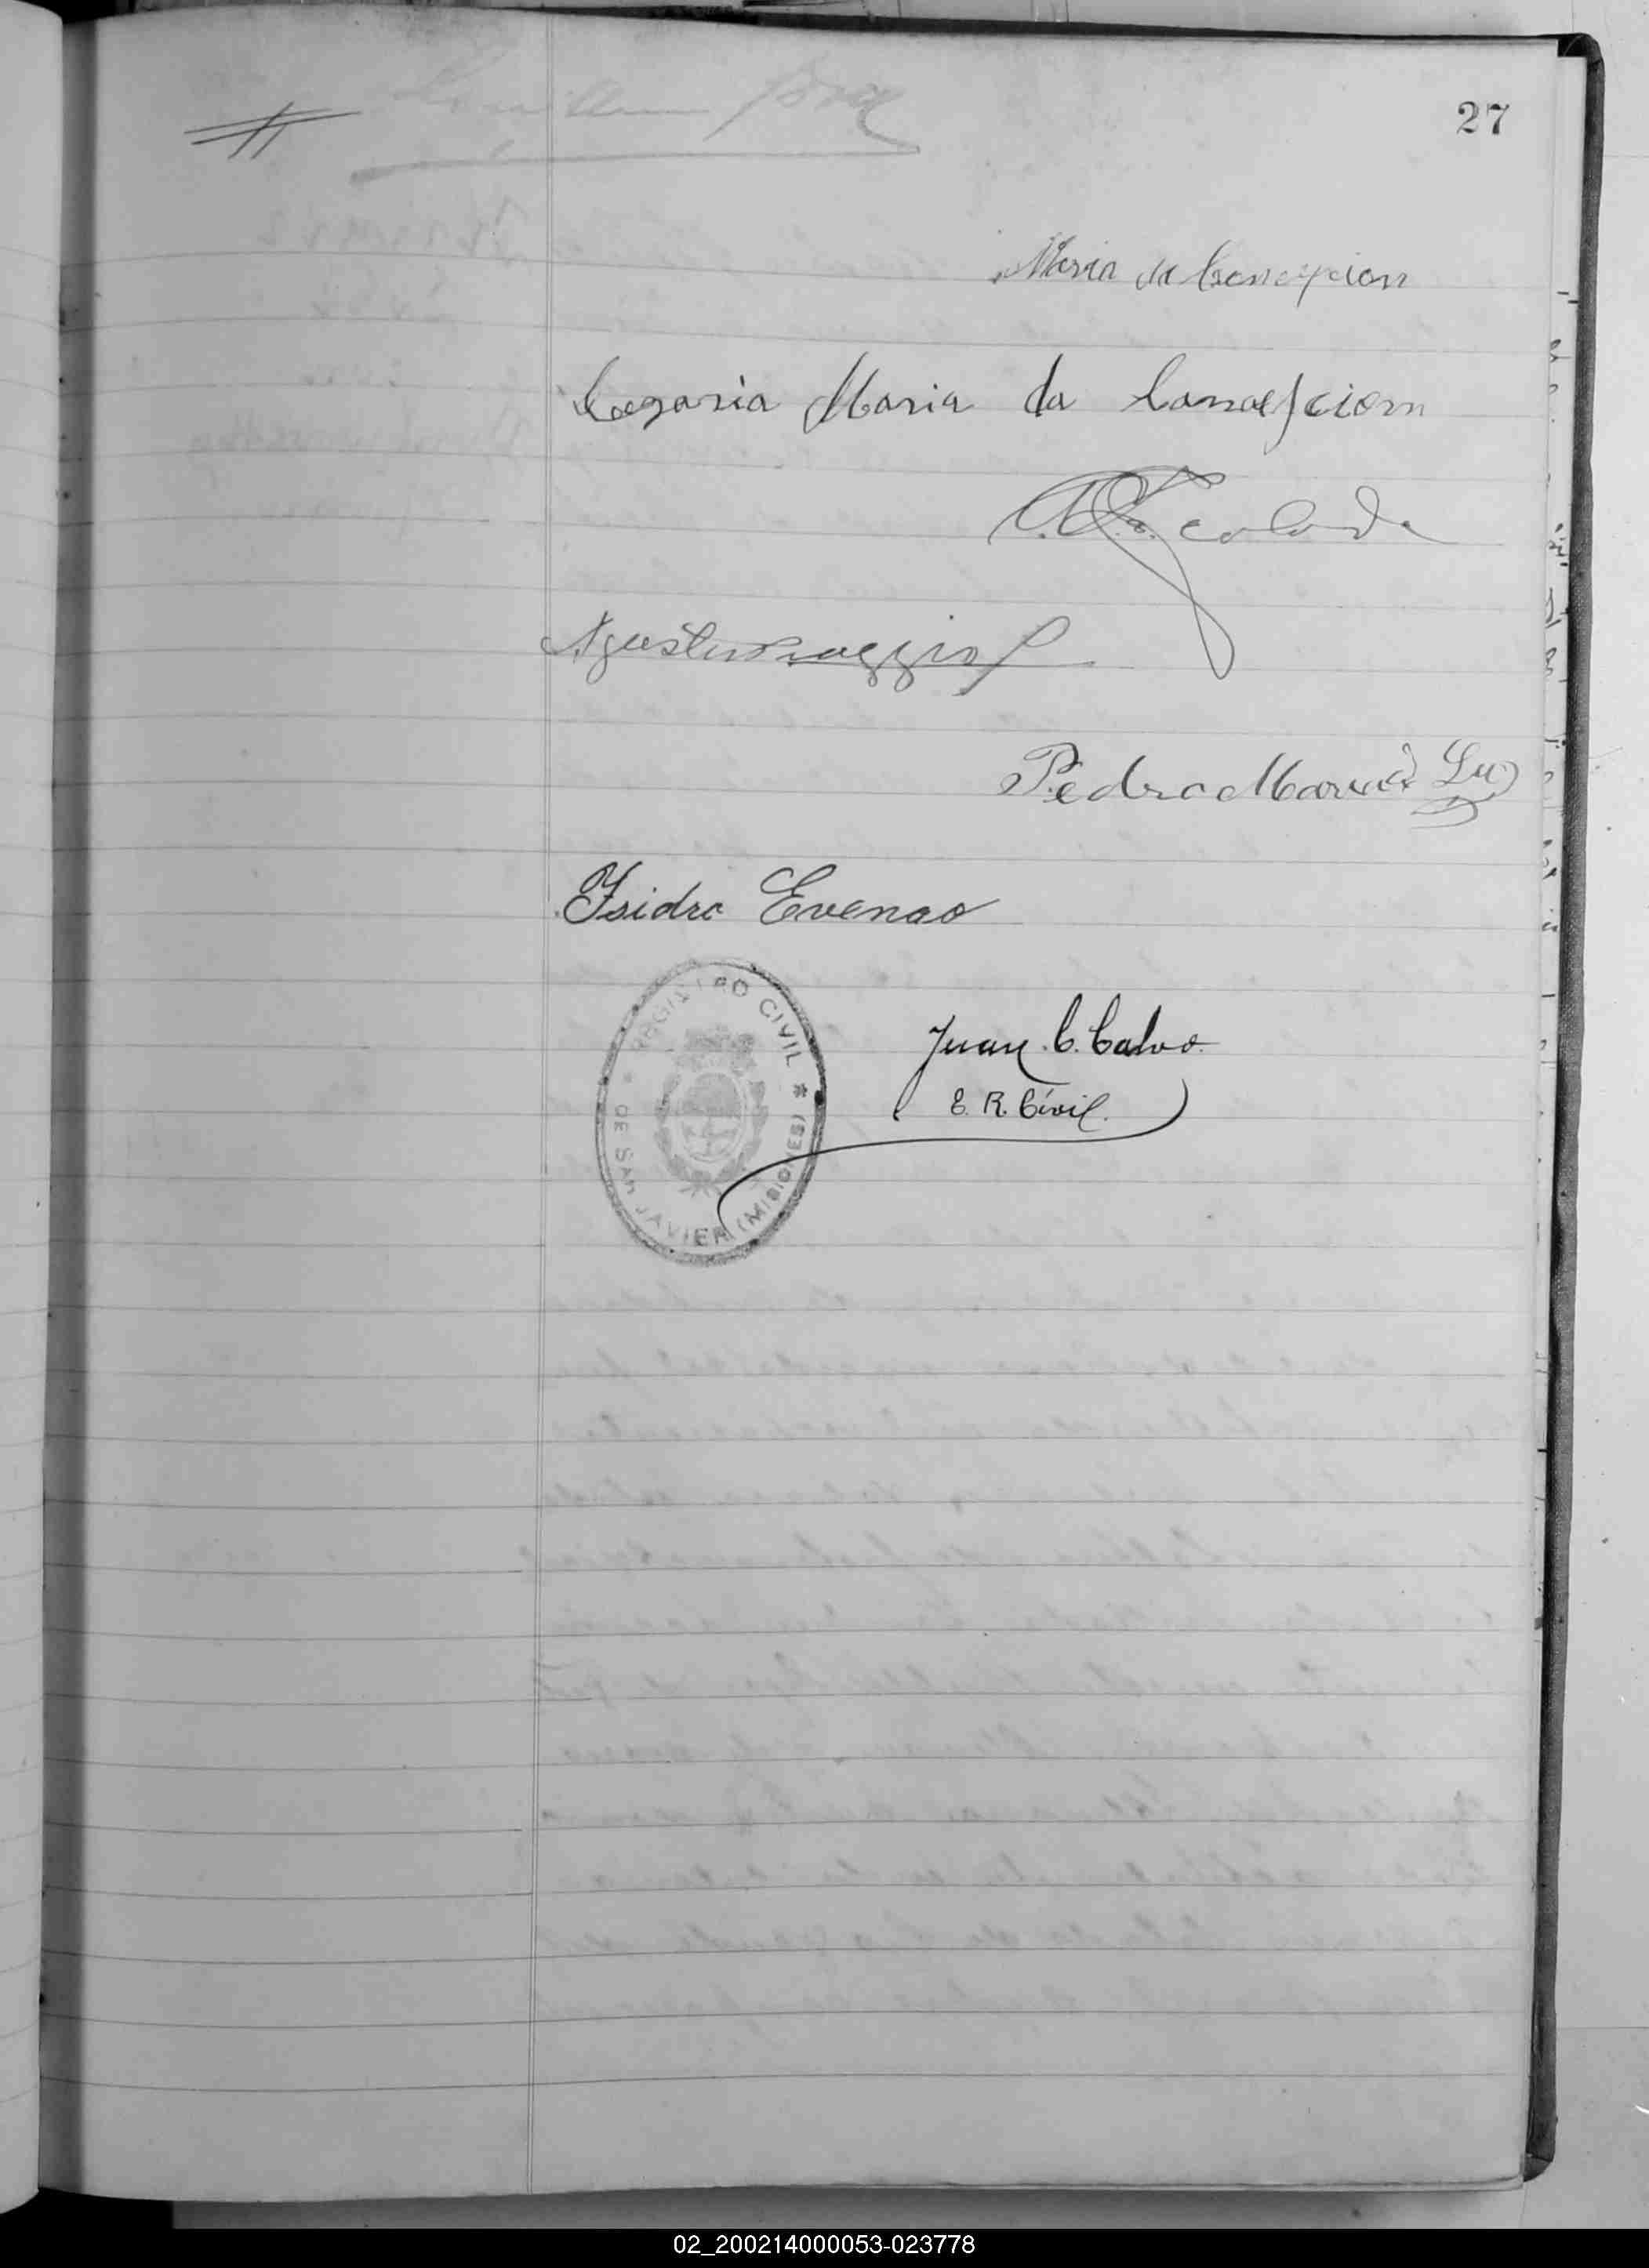 27
Maria da Concepcion
Maria da Concepcion
Agustin
Pedro Maria Luz
Isidro Evenao
REGISTRO CIVIL * DE SAN JAVIER (MISIONES) *
Juan C. Calvo.
E. R. Civil.
02_200214000053-023778